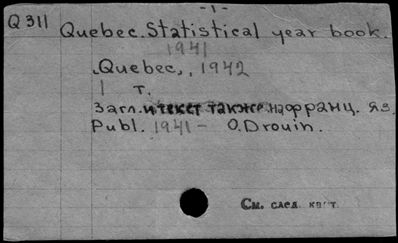 - 1 -
Q311 Quebec. Statistical year book.
1941
Quebec, 1942
1 т.
Загл. и текст также на франц. яз.
Publ. 1941 - O. Drouin.
См. след. карт.